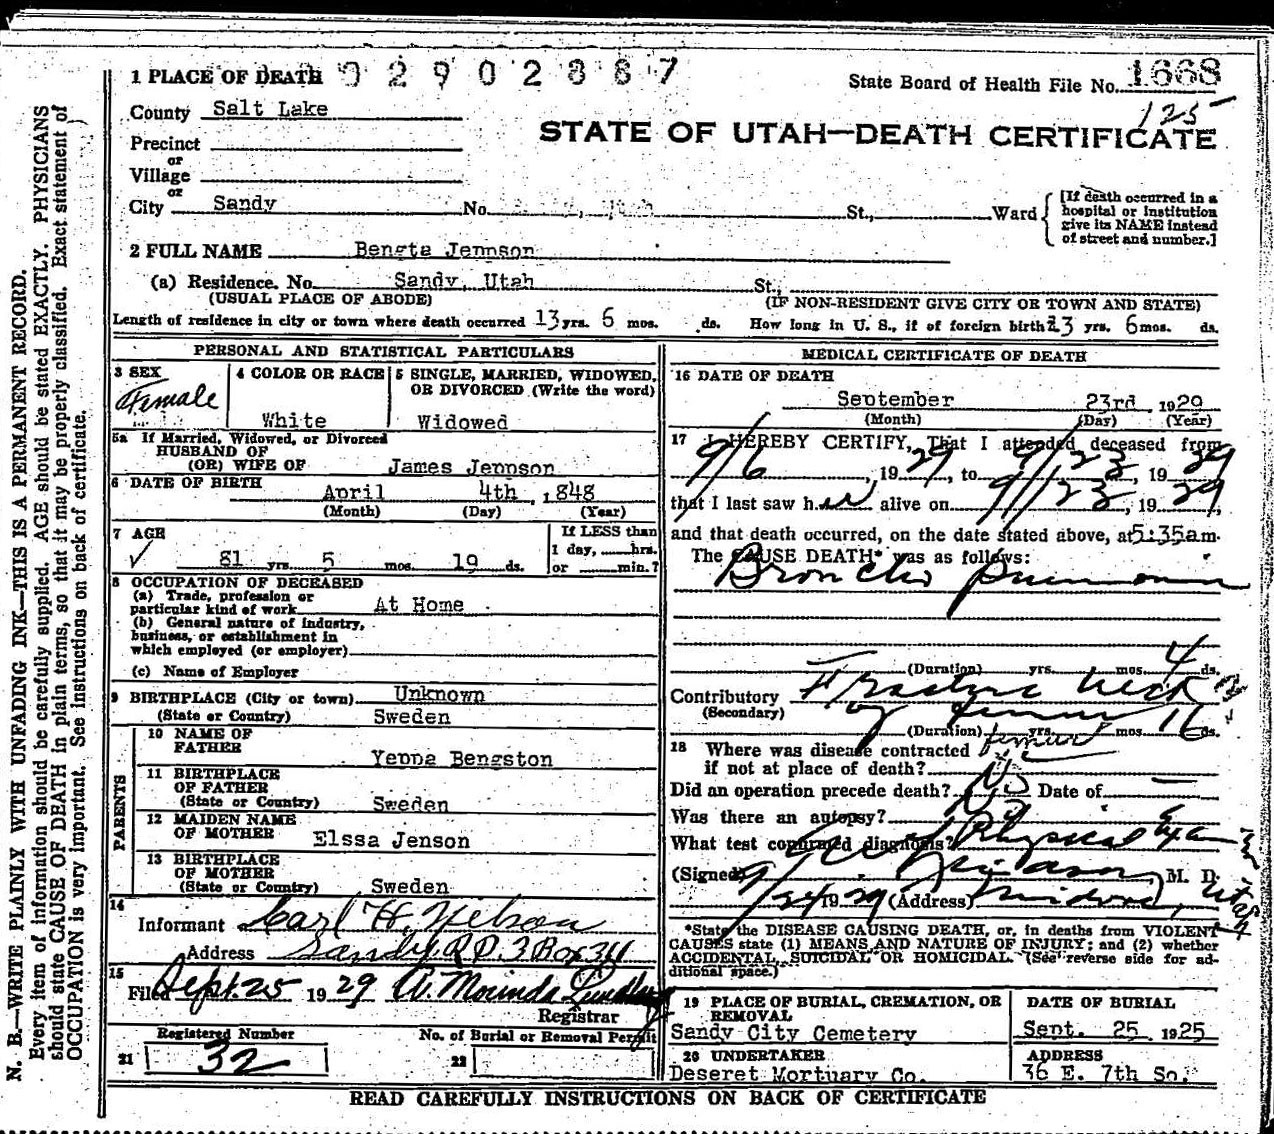 N. B.—WRITE PLAINLY WITH UNFADING INK—THIS IS A PERMANENT RECORD.
Every item of information should be carefully supplied. AGE should be stated EXACTLY. PHYSICIANS
should state CAUSE OF DEATH in plain terms, so that it may be properly classified. Exact statement of
OCCUPATION is very important. See instructions on back of certificate.
1 PLACE OF DEATH 02902887
State Board of Health File No. 1668
125
County Salt Lake
STATE OF UTAH—DEATH CERTIFICATE
Precinct
or
Village
or
City Sandy No. Utah St., Ward
[If death occurred in a
hospital or institution
give its NAME instead
of street and number.]
2 FULL NAME Bengta Jennson
(a) Residence. No. Sandy, Utah St.,
(USUAL PLACE OF ABODE) (IF NON-RESIDENT GIVE CITY OR TOWN AND STATE)
Length of residence in city or town where death occurred 13 yrs. 6 mos. ds. How long in U. S., if of foreign birth? 23 yrs. 6 mos. ds.
PERSONAL AND STATISTICAL PARTICULARS
3 SEX
Female
4 COLOR OR RACE
White
5 SINGLE, MARRIED, WIDOWED,
OR DIVORCED (Write the word)
Widowed
5a If Married, Widowed, or Divorced
HUSBAND OF
(OR) WIFE OF James Jennson
6 DATE OF BIRTH
April 4th, 1848
(Month) (Day) (Year)
7 AGE
✓ 81 yrs. 5 mos. 19 ds.
If LESS than
1 day, hrs.
or min.?
8 OCCUPATION OF DECEASED
(a) Trade, profession or
particular kind of work At Home
(b) General nature of industry,
business, or establishment in
which employed (or employer)
(c) Name of Employer
9 BIRTHPLACE (City or town) Unknown
(State or Country) Sweden
PARENTS
10 NAME OF
FATHER Yenna Bengston
11 BIRTHPLACE
OF FATHER
(State or Country) Sweden
12 MAIDEN NAME
OF MOTHER Elssa Jenson
13 BIRTHPLACE
OF MOTHER
(State or Country) Sweden
14
Informant Carl H. Nelson
Address Sandy R.D. 3 Box 311
15
Filed Sept. 25 1929 A. Morinda
Registrar
Registered Number
21 32
No. of Burial or Removal Permit
22
MEDICAL CERTIFICATE OF DEATH
16 DATE OF DEATH
September 23rd 1929
(Month) (Day) (Year)
17 I HEREBY CERTIFY, That I attended deceased from
9/6, 1929, to 9/23, 1929
that I last saw her alive on 9/23, 1929,
and that death occurred, on the date stated above, at 5:35am.
The CAUSE DEATH* was as follows:
Broncho pneumonia
(Duration) yrs. mos. 4 ds.
Contributory Fracture neck
(Secondary) of femur
(Duration) yrs. mos. 16 ds.
18 Where was disease contracted femur
if not at place of death?
Did an operation precede death? No Date of —
Was there an autopsy? No
What test confirmed diagnosis? Physical Exam
(Signed) M. D.
9/24 1929 (Address) Midvale, Utah
*State the DISEASE CAUSING DEATH, or, in deaths from VIOLENT
CAUSES state (1) MEANS AND NATURE OF INJURY; and (2) whether
ACCIDENTAL, SUICIDAL OR HOMICIDAL. (See reverse side for ad-
ditional space.)
19 PLACE OF BURIAL, CREMATION, OR
REMOVAL
Sandy City Cemetery
DATE OF BURIAL
Sept. 25 1925
20 UNDERTAKER
Deseret Mortuary Co.
ADDRESS
36 E. 7th So.
READ CAREFULLY INSTRUCTIONS ON BACK OF CERTIFICATE